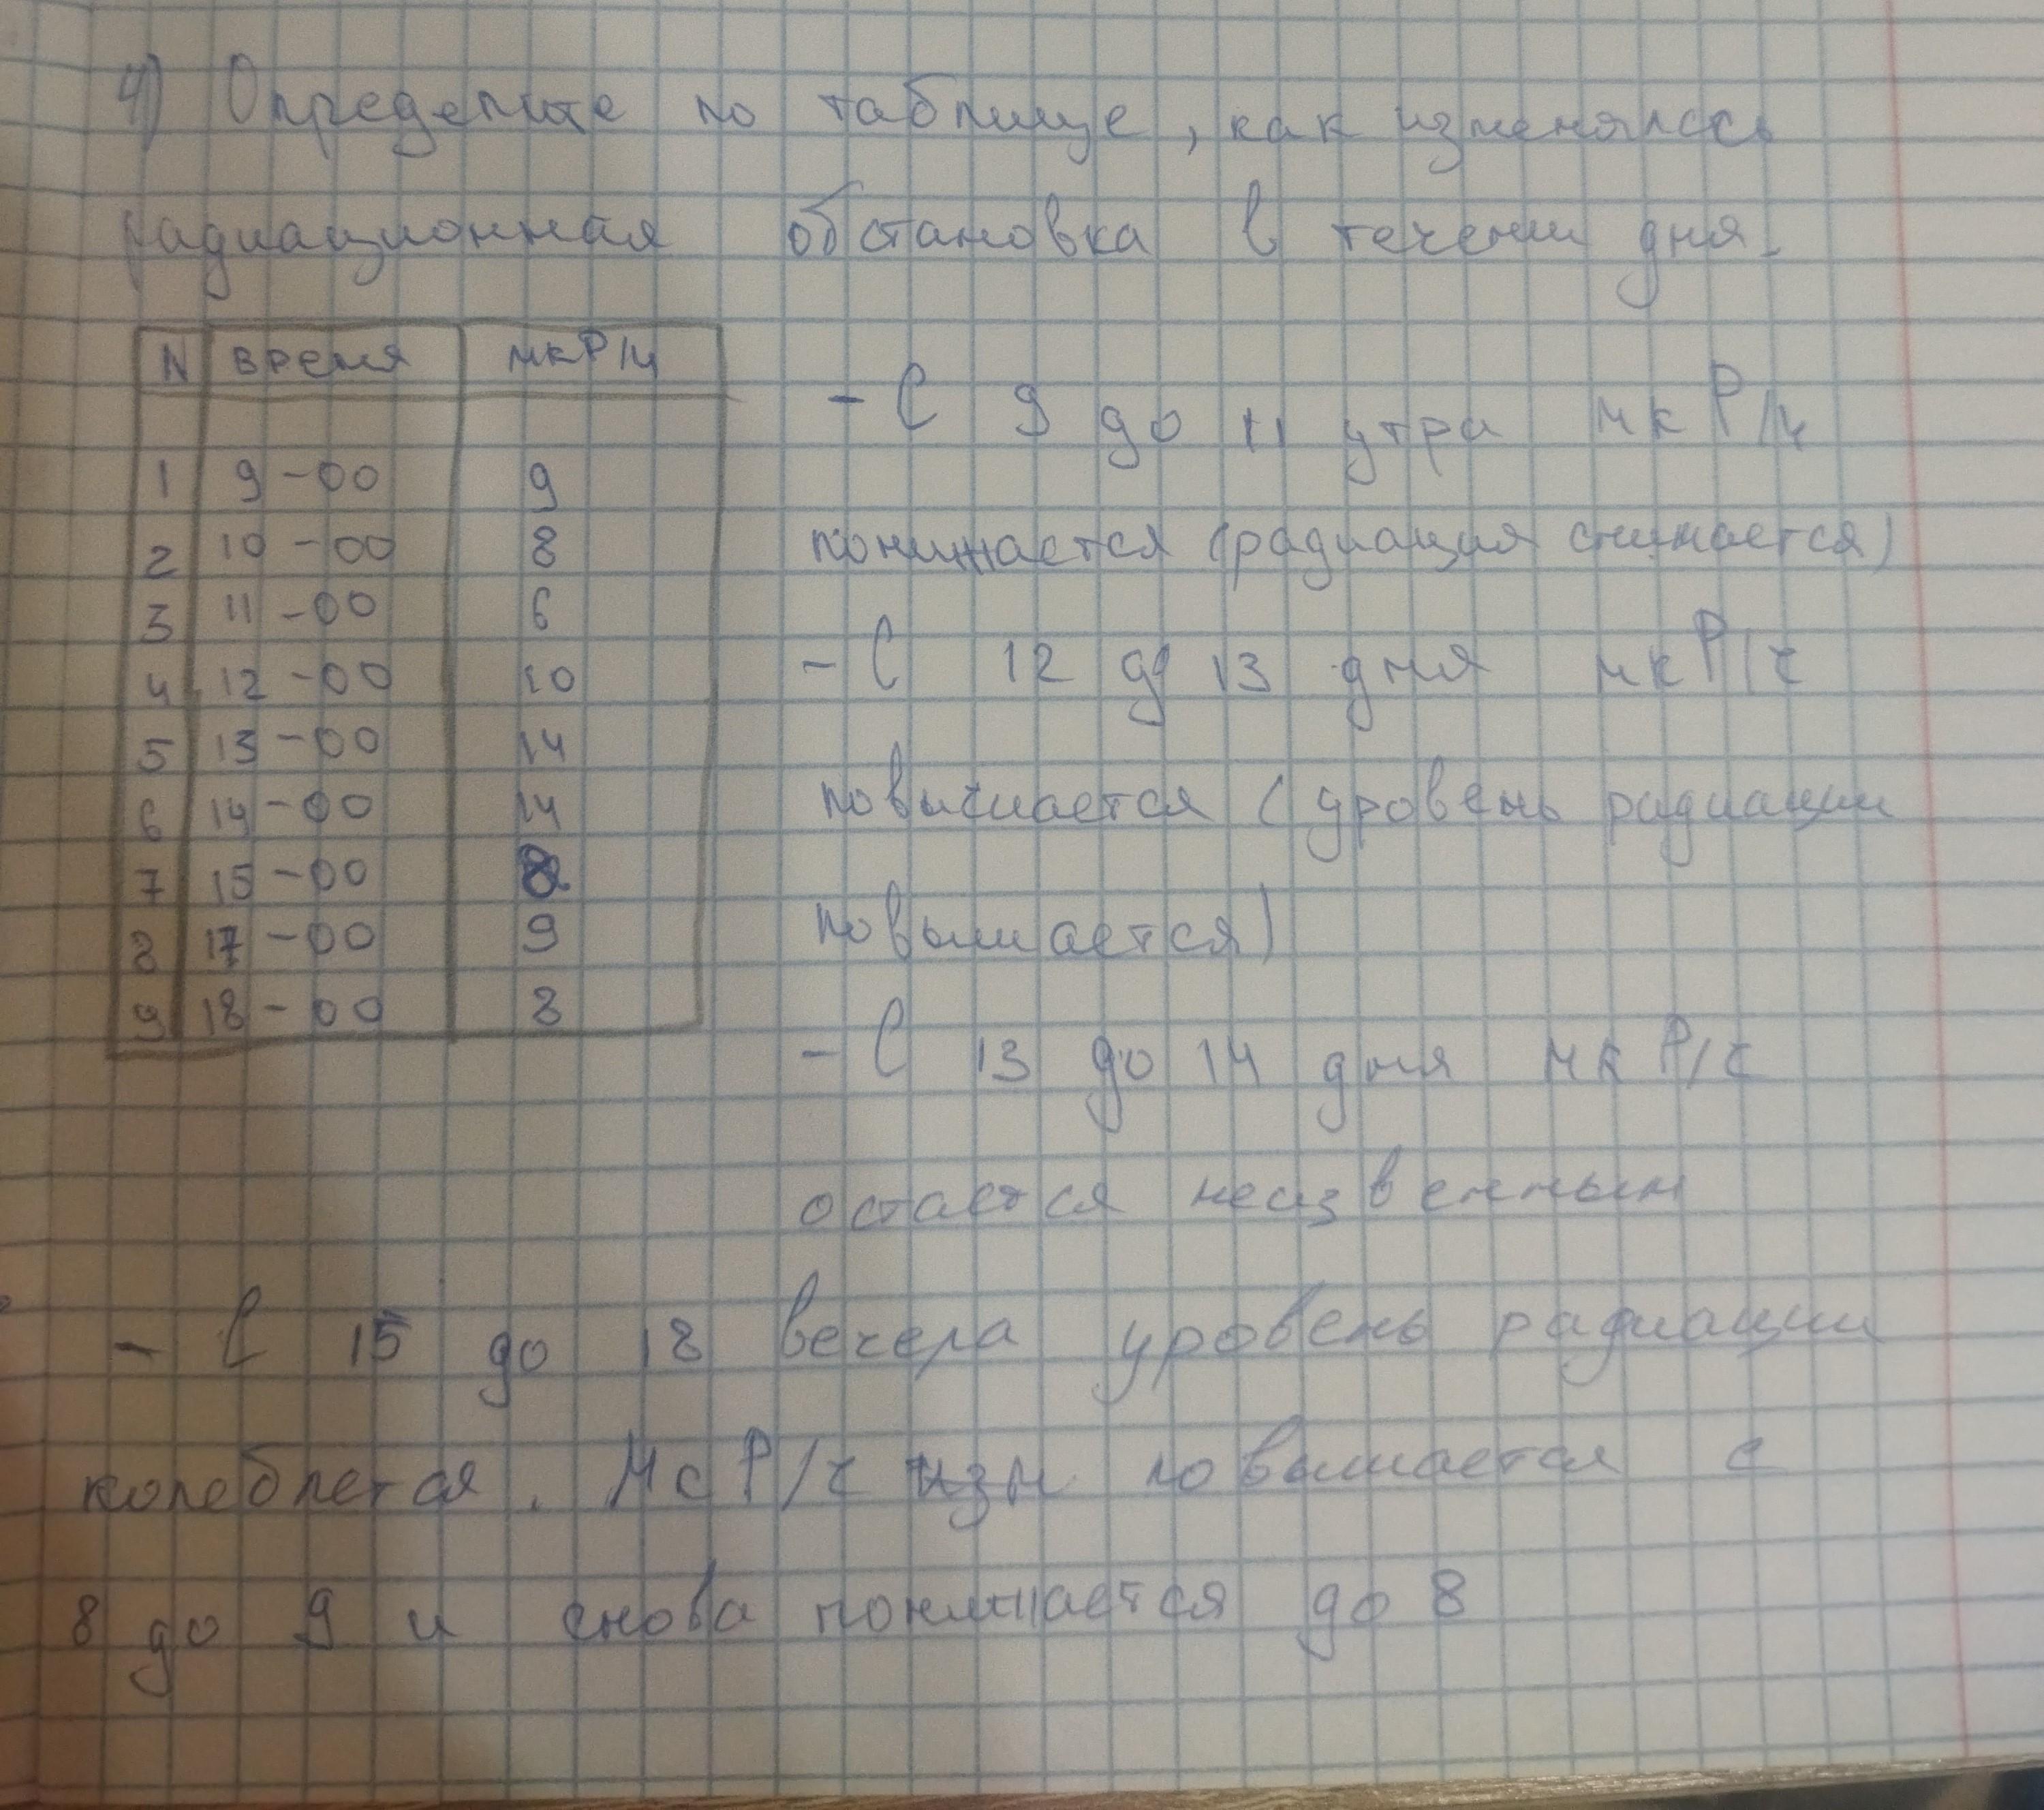 4) Определите по таблице, как изменялась
радиационная обстановка в течении дня.
N время мкР/ч
1 9-00 9
2 10-00 8
3 11-00 6
4 12-00 10
5 13-00 14
6 14-00 14
7 15-00 8
8 17-00 9
9 18-00 8
- С 9 до 11 утра мкР/ч
понижается (радиация снижается)
- С 12 до 13 дня мкР/ч
повышается (уровень радиации
повышается)
- С 13 до 14 дня мкР/ч
остается неизвенным
- С 15 до 18 вечера уровень радиации
колеблется. МсР/ч изм повышается с
8 до 9 и снова понижается до 8